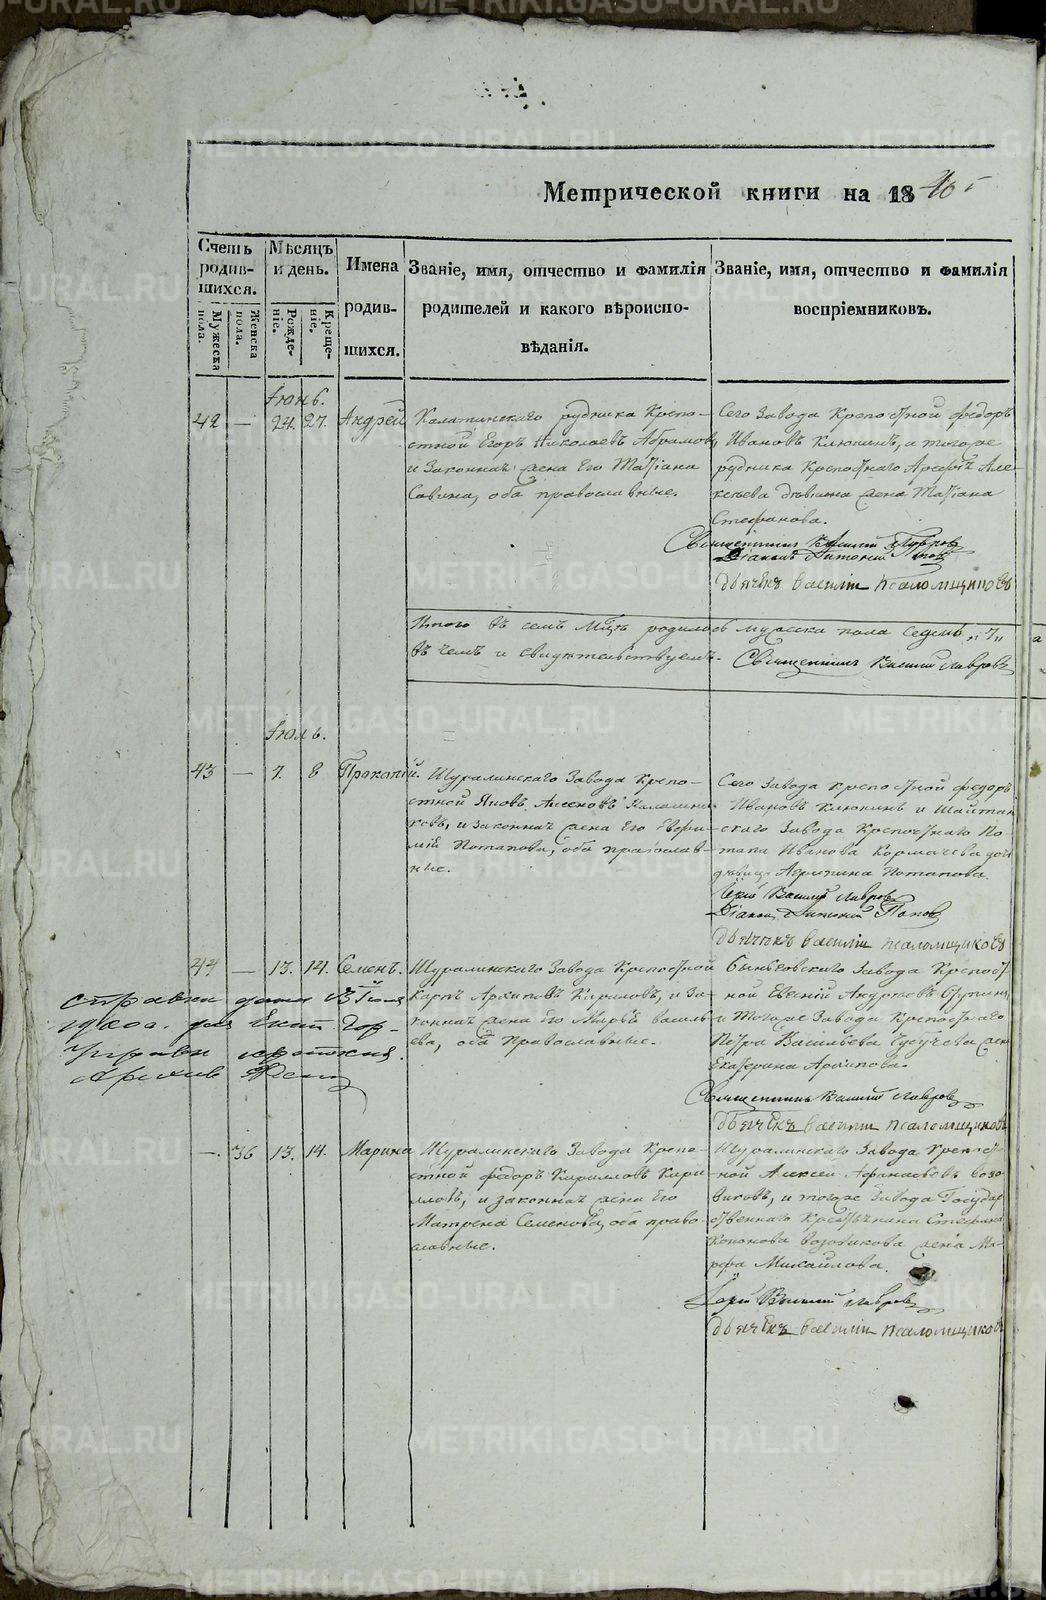 Метрической книги на 1840 г
Счетъ родившихся.
Мужеска пола.
Женска пола.
Мѣсяцъ и день.
Рожденіе.
Крещеніе.
Имена родившихся.
Званіе, имя, отчество и фамилія
родителей и какого вѣроиспо-
вѣданія.
Званіе, имя, отчество и фамилія
воспріемниковъ.
Іюнь.
42 — 24. 27. Андрей
рудника Крѣпо-
стной Егоръ Николаевъ Абрамовъ
и Законная жена Его Татіана
Савина, оба православные.
Сего Завода Крѣпостной Федоръ
Ивановъ Клюкинъ, и тогоже
рудника Крѣпостнаго Але-
ксѣева жена Татіана
Стефанова.
Священникъ Василій Лавровъ
Діаконъ Антоній Поповъ
дьячекъ василіи псаломщиковъ
Итого въ семъ Мцѣ родилось мужеска пола седмь „7„
въ чемъ и свидѣтельствуемъ. Священникъ Василий Лавровъ
Іюль.
43 — 7. 8 Прокопій.
Шуралинскаго Завода Крѣпо-
стной Яковъ Калашни-
ковъ, и законная жена Его
Потапова, оба православ-
ные.
Сего Завода крѣпостной Федоръ
Ивановъ Клюкинъ и Шайтан-
скаго Завода Крѣпостнаго По-
тапа Иванова дочь
дѣвица Агрипина Потапова.
Іерей Василій Лавровъ
Діаконъ Антоній Поповъ
дьячекъ василіи псаломщиковъ
44 — 13. 14. Семенъ.
Шуралинскаго Завода Крѣпостной
Карпъ Архиповъ Кириловъ, и За-
конная жена Его Марья василь-
ева, оба Православные.
Быньговскаго Завода Крѣпост-
ной Евгеній Андреевъ
и Тогоже Завода Крѣпостнаго
Петра Васильева жена
Екатерина Архипова.
Священникъ Василій Лавровъ
дьячекъ василіи псаломщиковъ
справка дана
Екат. Гор-
Архив
— 36 13. 14. Марина
Шуралинскаго Завода Крѣпо-
стной Федоръ Кириловъ Кири-
ловъ, и законная жена Его
Матрена Семенова, оба право-
славные.
Шуралинскаго Завода Крѣпост-
ной Алексѣй Афанасьевъ возо-
виковъ, и тогоже Завода Государ-
ственнаго Крестьянина Стефана
Кононова возовикова жена Ма-
рфа Михайлова.
Іерей Василій Лавровъ
дьячекъ василіи псаломщиковъ
METRIKI.GASO-URAL.RU